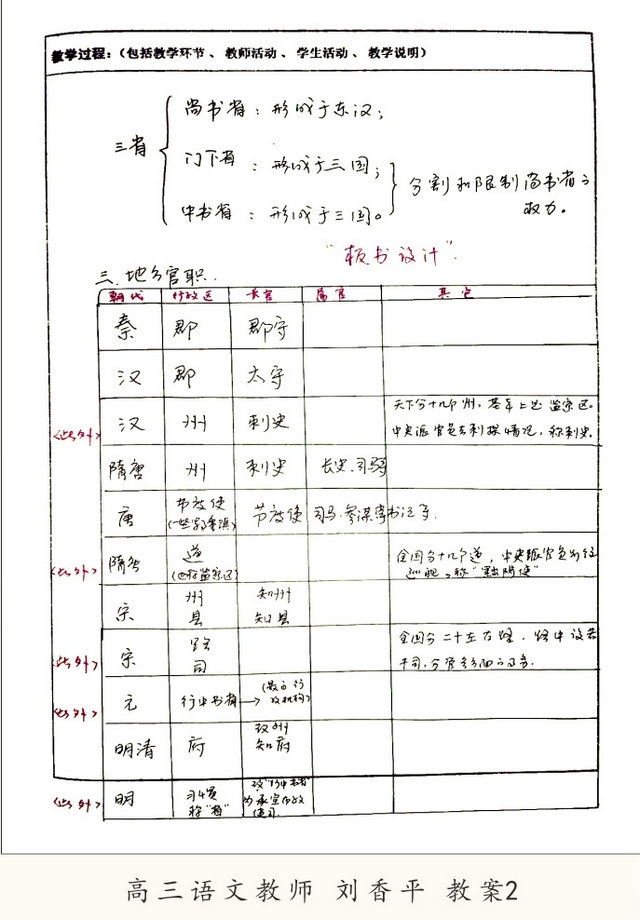 教学过程：（包括教学环节、教师活动、学生活动、教学说明）
三省
尚书省：形成于东汉；
门下省：形成于三国；
中书省：形成于三国。
分割和限制尚书省的
权力。
"板书设计"
三.地方官职.
朝代 行政区 长官 属官 其它
秦 郡 郡守
汉 郡 太守
<此外> 汉 州 刺史
天下分十几个州，基本上是监察区。
中央派官员去刺探情况，称刺史。
隋唐 州 刺史 长史.司马
唐 节度使 节度使 司马.参谋掌书记等
(一些军事重镇)
<此外> 隋唐 道
(也称监察区)
全国分十几个道，中央派官员前往
巡视，称"黜陟使"
宋 州 知州
县 知县
<此外> 宋 路
司
全国分二十左右路，路中设若
干司，分管各方面的事务.
<此外> 元 行中书省→(最高行
政机构)
明清 府 改州
知府
<此外> 明 习惯
称"省"
改"行中书省"
为承宣布政
使司.
高三语文教师 刘香平 教案2